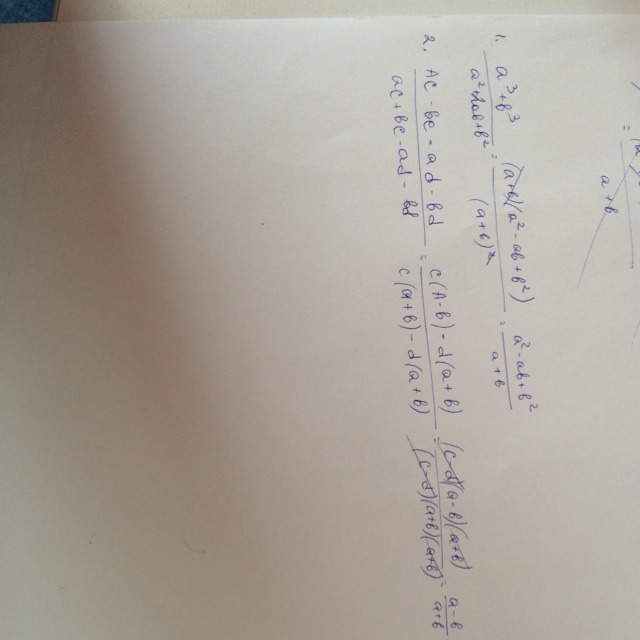 = a+b
1. (a³+b³)/(a²+2ab+b²) = ((a+b)(a²-ab+b²))/((a+b)²) = (a²-ab+b²)/(a+b)
2. (Ac-bc-ad-bd)/(ac+bc-ad-bd) = (c(A-b)-d(a+b))/(c(a+b)-d(a+b)) = ((c-d)(a-b)(a+b))/((c-d)(a+b)(a+b)) = (a-b)/(a+b)